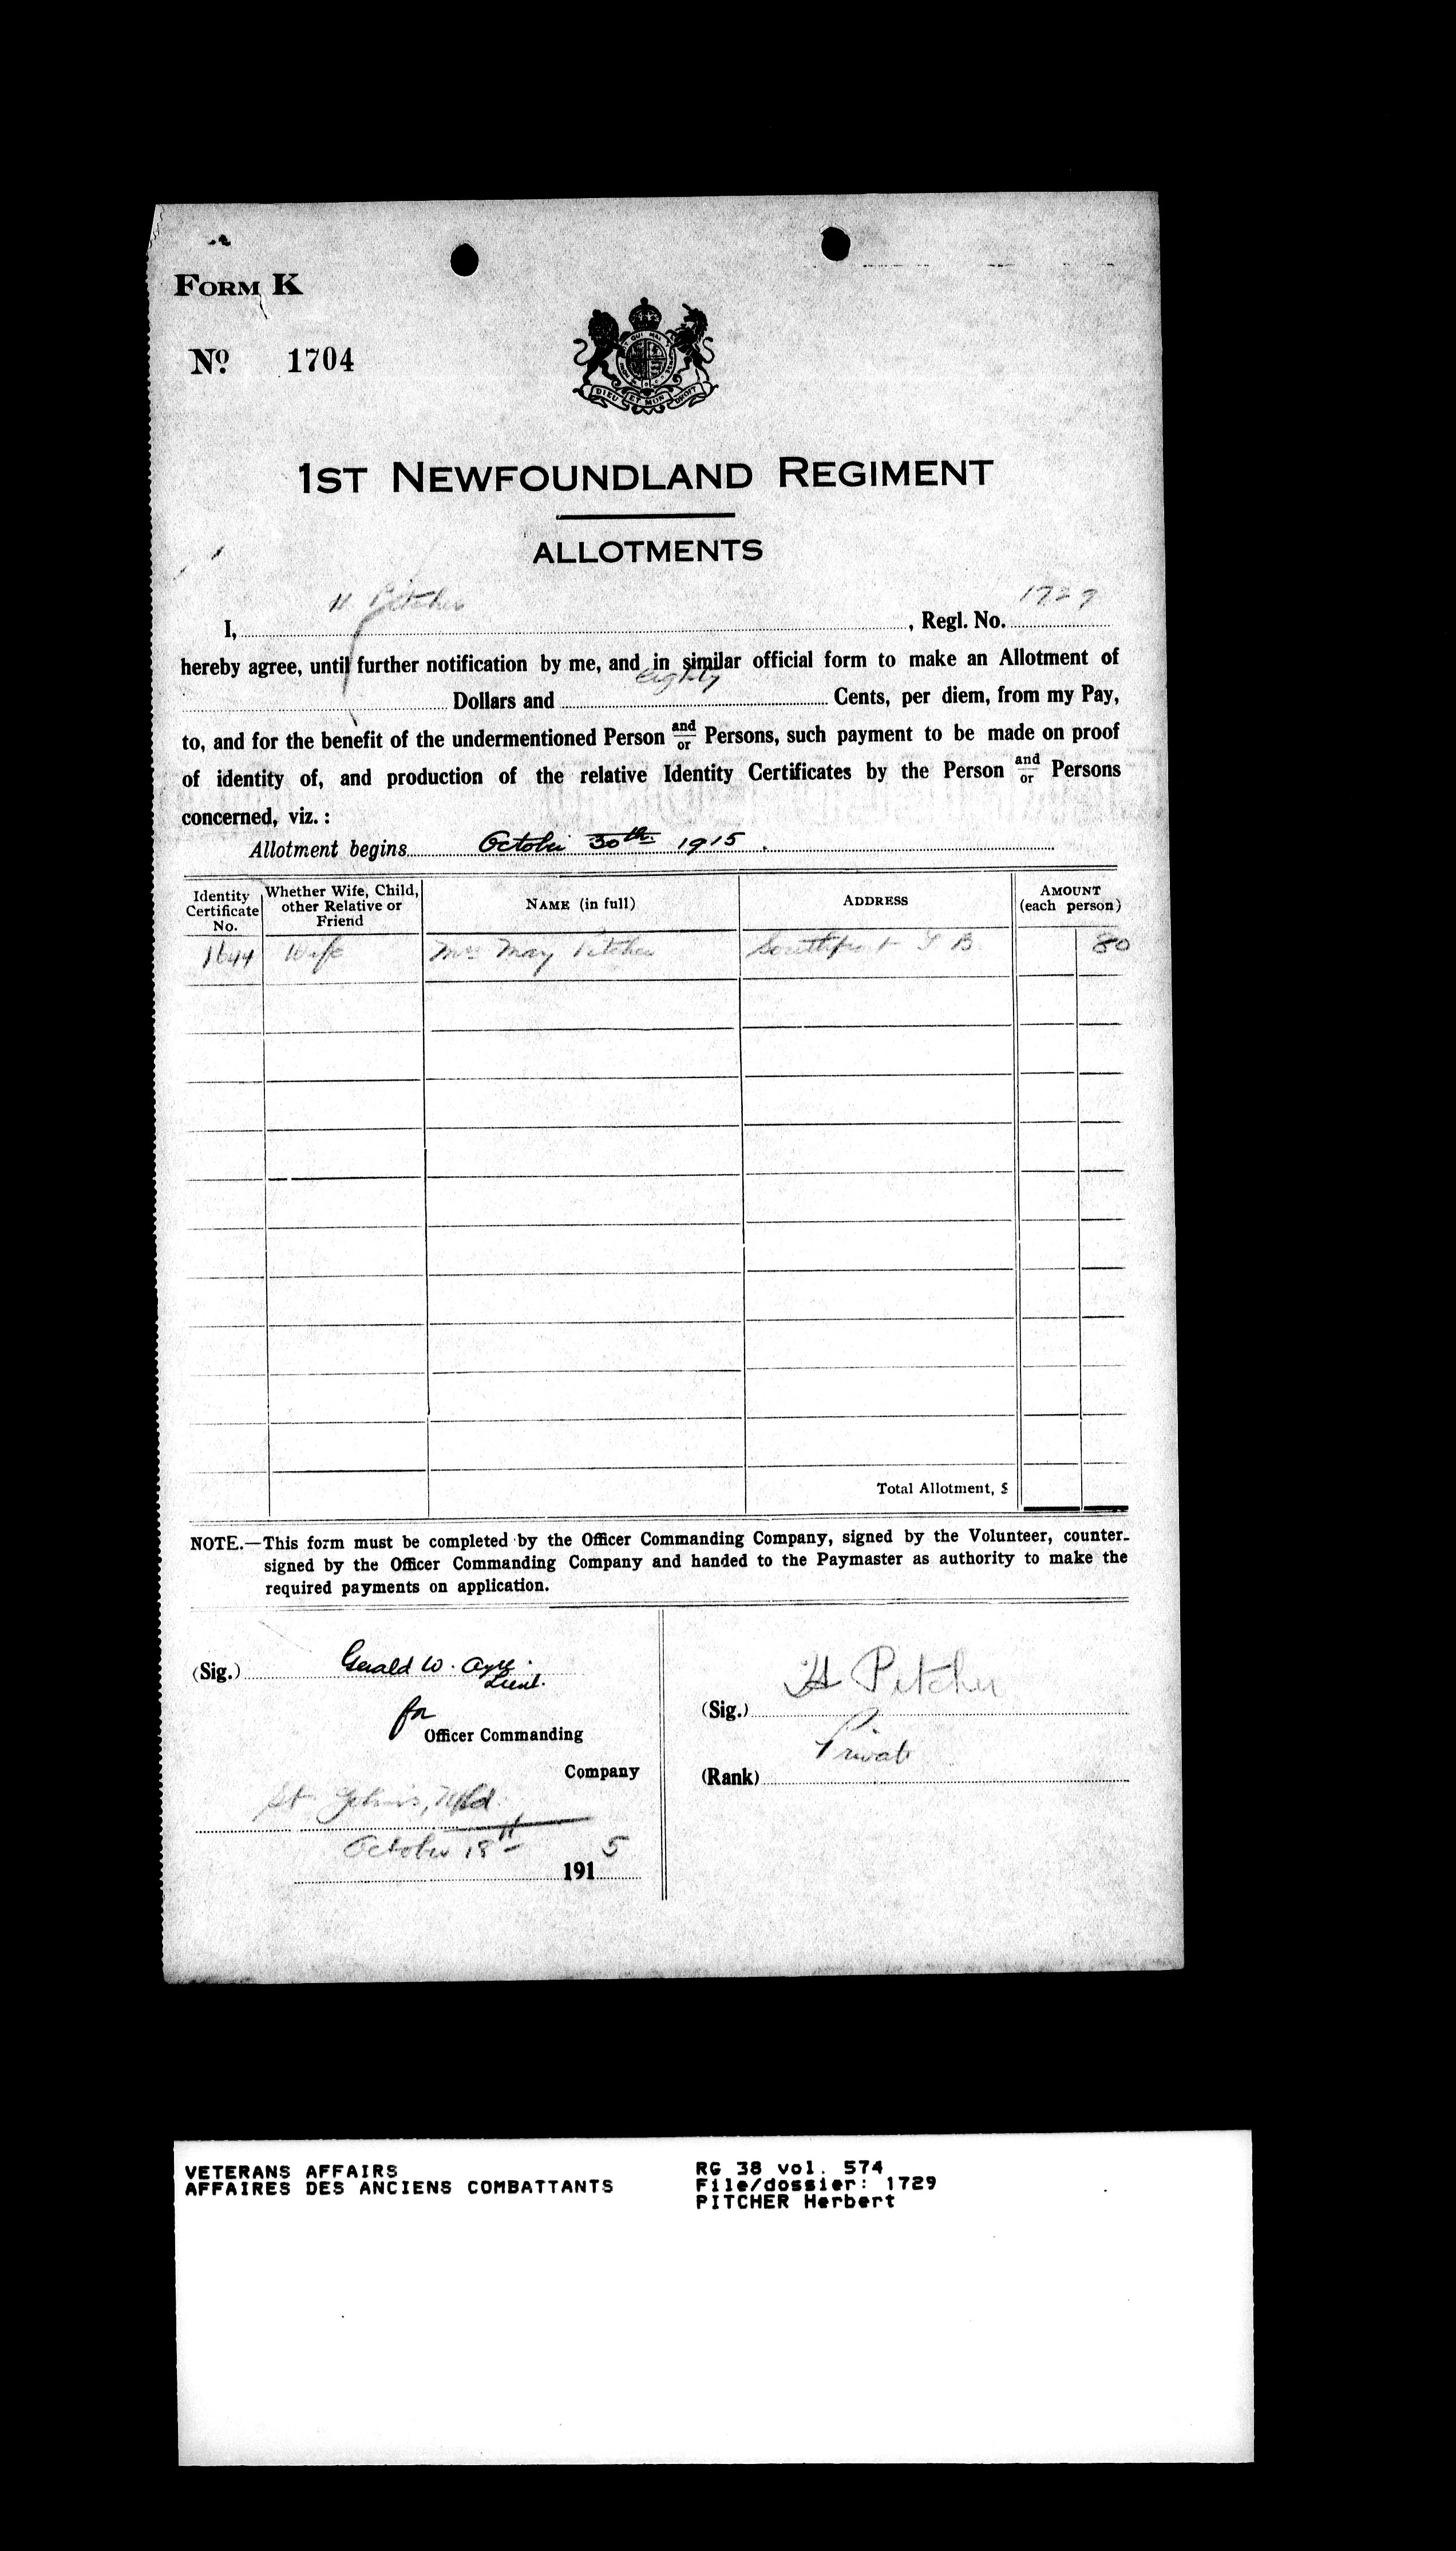 FORM K
No. 1704
DIEU ET MON DROIT
1ST NEWFOUNDLAND REGIMENT
ALLOTMENTS
I, H Pitcher, Regl. No. 1729
hereby agree, until further notification by me, and in similar official form to make an Allotment of
Dollars and eighty Cents, per diem, from my Pay,
to, and for the benefit of the undermentioned Person and/or Persons, such payment to be made on proof
of identity of, and production of the relative Identity Certificates by the Person and/or Persons
concerned, viz. :
Allotment begins October 30th 1915.
Identity Certificate No. Whether Wife, Child, other Relative or Friend NAME (in full) ADDRESS AMOUNT (each person)
1644 Wife Mrs May Pitcher Southport T B. 80
Total Allotment, $
NOTE.—This form must be completed by the Officer Commanding Company, signed by the Volunteer, counter-
signed by the Officer Commanding Company and handed to the Paymaster as authority to make the
required payments on application.
(Sig.) Gerald W. Ayre
Lieut.
for
Officer Commanding
Company
St. John's, Nfld.
October 18th 1915
(Sig.) H Pitcher
(Rank) Private
VETERANS AFFAIRS
AFFAIRES DES ANCIENS COMBATTANTS
RG 38 vol. 574
File/dossier: 1729
PITCHER Herbert